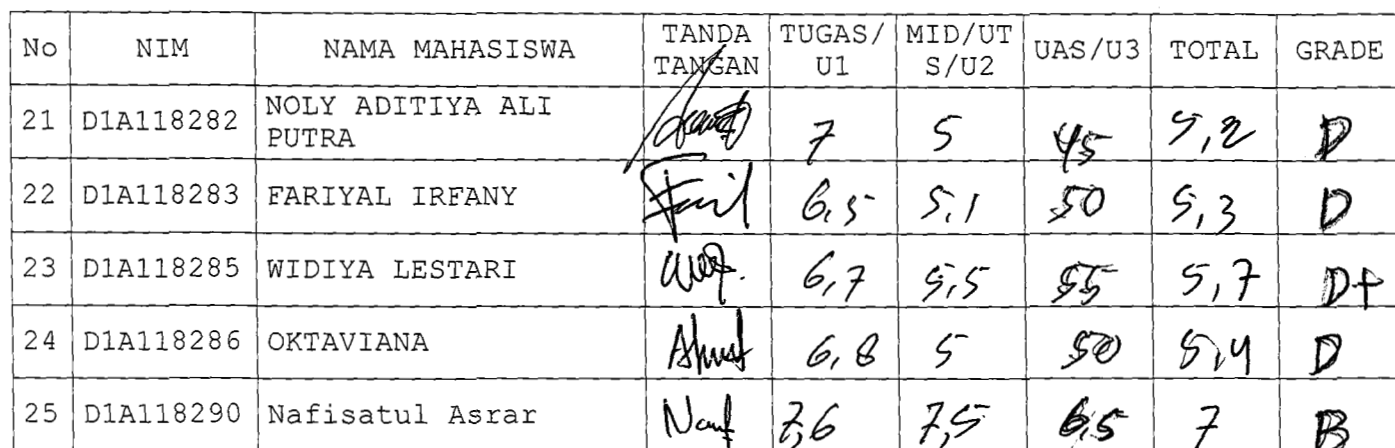 No NIM NAMA MAHASISWA TANDA TANGAN TUGAS/U1 MID/UTS/U2 UAS/U3 TOTAL GRADE
21 D1A118282 NOLY ADITIYA ALI PUTRA 7 5 45 5,2 D
22 D1A118283 FARIYAL IRFANY 6,5 5,1 50 5,3 D
23 D1A118285 WIDIYA LESTARI 6,7 5,5 55 5,7 D+
24 D1A118286 OKTAVIANA 6,8 5 50 5,4 D
25 D1A118290 Nafisatul Asrar 7,6 7,5 6.5 7 B